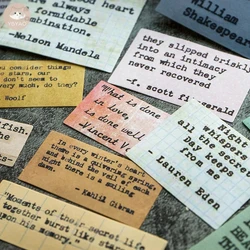 good heart
are always
formidable
combination.
-Nelson Mandela
William
Shakespear
they slipped briskly
into an intimacy
from which they
never recovered
-f. scott fitzgerald
you consider things
stars, our
don't seem to
very much, do they?
Woolf
What is done
in love,
is done
well
Vincent V
night
Whispers
Day keeps
from me
- Lauren Eden
In every winter's heart
there is a quivering spring,
and behind the veil of each
night there is a smiling
- Kahlil Gibran
"Moments of their secret life
together burst like stars
upon his memory."